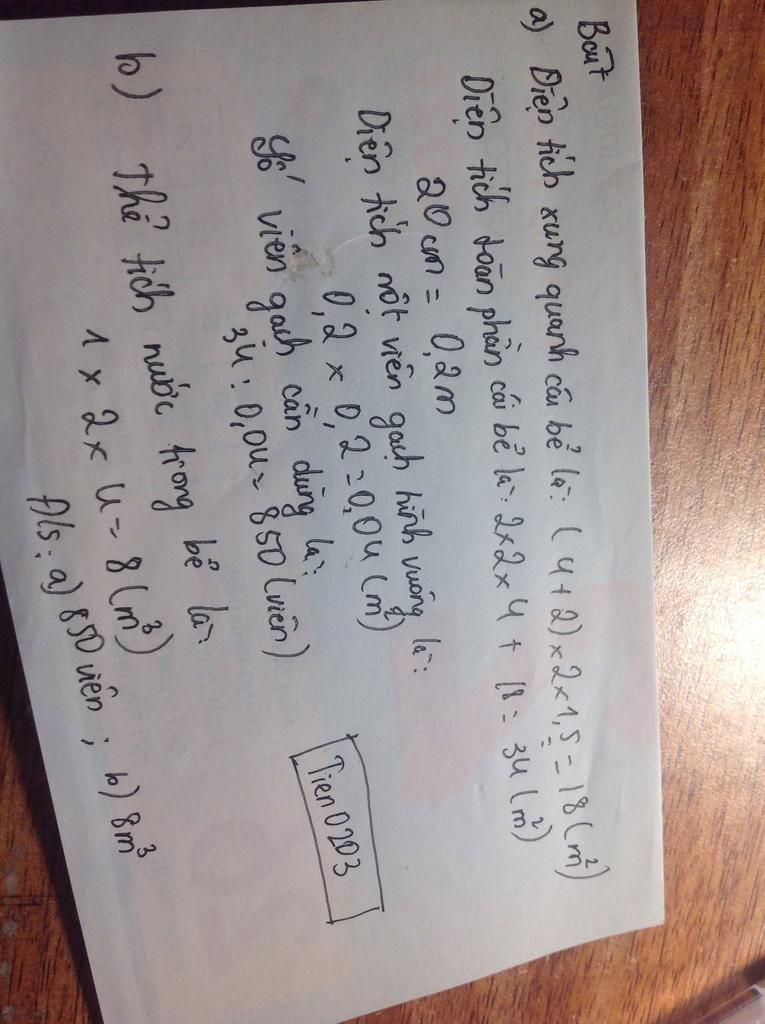 Bài 7
a) Diện tích xung quanh cái bể là: (4+2)×2×1,5 = 18 (m²)
Diện tích toàn phần cái bể là: 2×2×4 + 18 = 34 (m²)
20 cm = 0,2m
Diện tích một viên gạch hình vuông là:
0,2 × 0,2 = 0,04 (m²)
Số viên gạch cần dùng là:
34 : 0,04 = 850 (viên)
b) Thể tích nước trong bể là:
1 × 2 × 4 = 8 (m³)
Đ/S: a) 850 viên ; b) 8m³
Tien0203